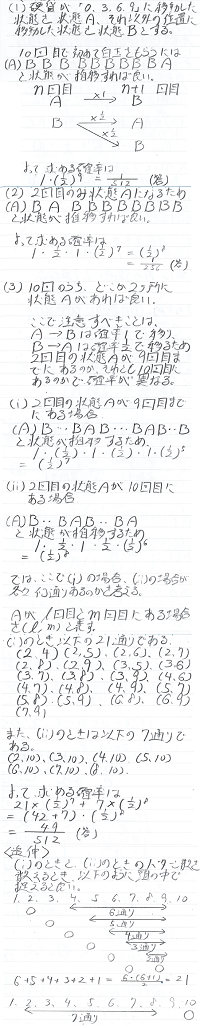 (1) 硬貨が「0、3、6、9」に移動した
状態を状態A、それ以外の位置に
移動した状態を状態Bとする。
10回目で初めて白玉をもらうには
(A) B B B B B B B B B A
と状態が推移すれば良い。
n回目 n+1 回目
A ×1 B
B ×1/2 A
×1/2 B
よって求める確率は
1・(1/2)^9 = 1/512 (答)
(2) 2回目のみ状態Aになるため
(A) B A B B B B B B B B
と状態が推移すれば良い。
よって求める確率は
1・1/2・1・(1/2)^7 = (1/2)^8
= 1/256 (答)
(3) 10回のうち、どこか2ヶ所に
状態Aがあれば良い。
ここで注意すべきことは、
A→Bは確率1で移り、
B→Aは確率1/2で移るため
2回目の状態Aが9回目ま
でにあるのか、それとも10回目に
あるのかで確率が異なる。
(i) 2回目の状態Aが9回目まで
にある場合
(A) B‥BAB‥BAB‥B
と状態が推移するため
= (1/2)^7
(ii) 2回目の状態Aが10回目に
ある場合
(A) B‥BAB‥BA
と状態が推移するため
= (1/2)^8
では、ここで(i)の場合、(ii)の場合が
各々何通りあるのか考える。
Aがl回目とm回目にある場合
を(l, m)と表す。
(i)のとき以下の21通りである。
(2,4) (2,5)、(2,6)、(2,7)
(2,8)、(2,9)、(3,5)、(3,6)
(3,7)、(3,8)、(3,9)、(4,6)
(4,7)、(4,8)、(4,9)、(5,7)
(5,8)、(5,9)、(6,8)、(6,9)
(7,9)
また、(ii)のときは以下の7通りで
ある。
(2,10)、(3,10)、(4,10)、(5,10)
(6,10)、(7,10)、(8,10)、
よって求める確率は
21×(1/2)^7 + 7×(1/2)^8
= (42+7)・(1/2)^8
(答)
(i)のときと、(ii)のときの
以下のように
考えると良い。
1. 2. 3. 4. 5. 6. 7. 8. 9. 10
6通り
5通り
4通り
3通り
2通り
6+5+4+3+2+1 = 6・(6+1)/2 = 21
1. 2. 3. 4. 5. 6. 7. 8. 9. 10
7通り